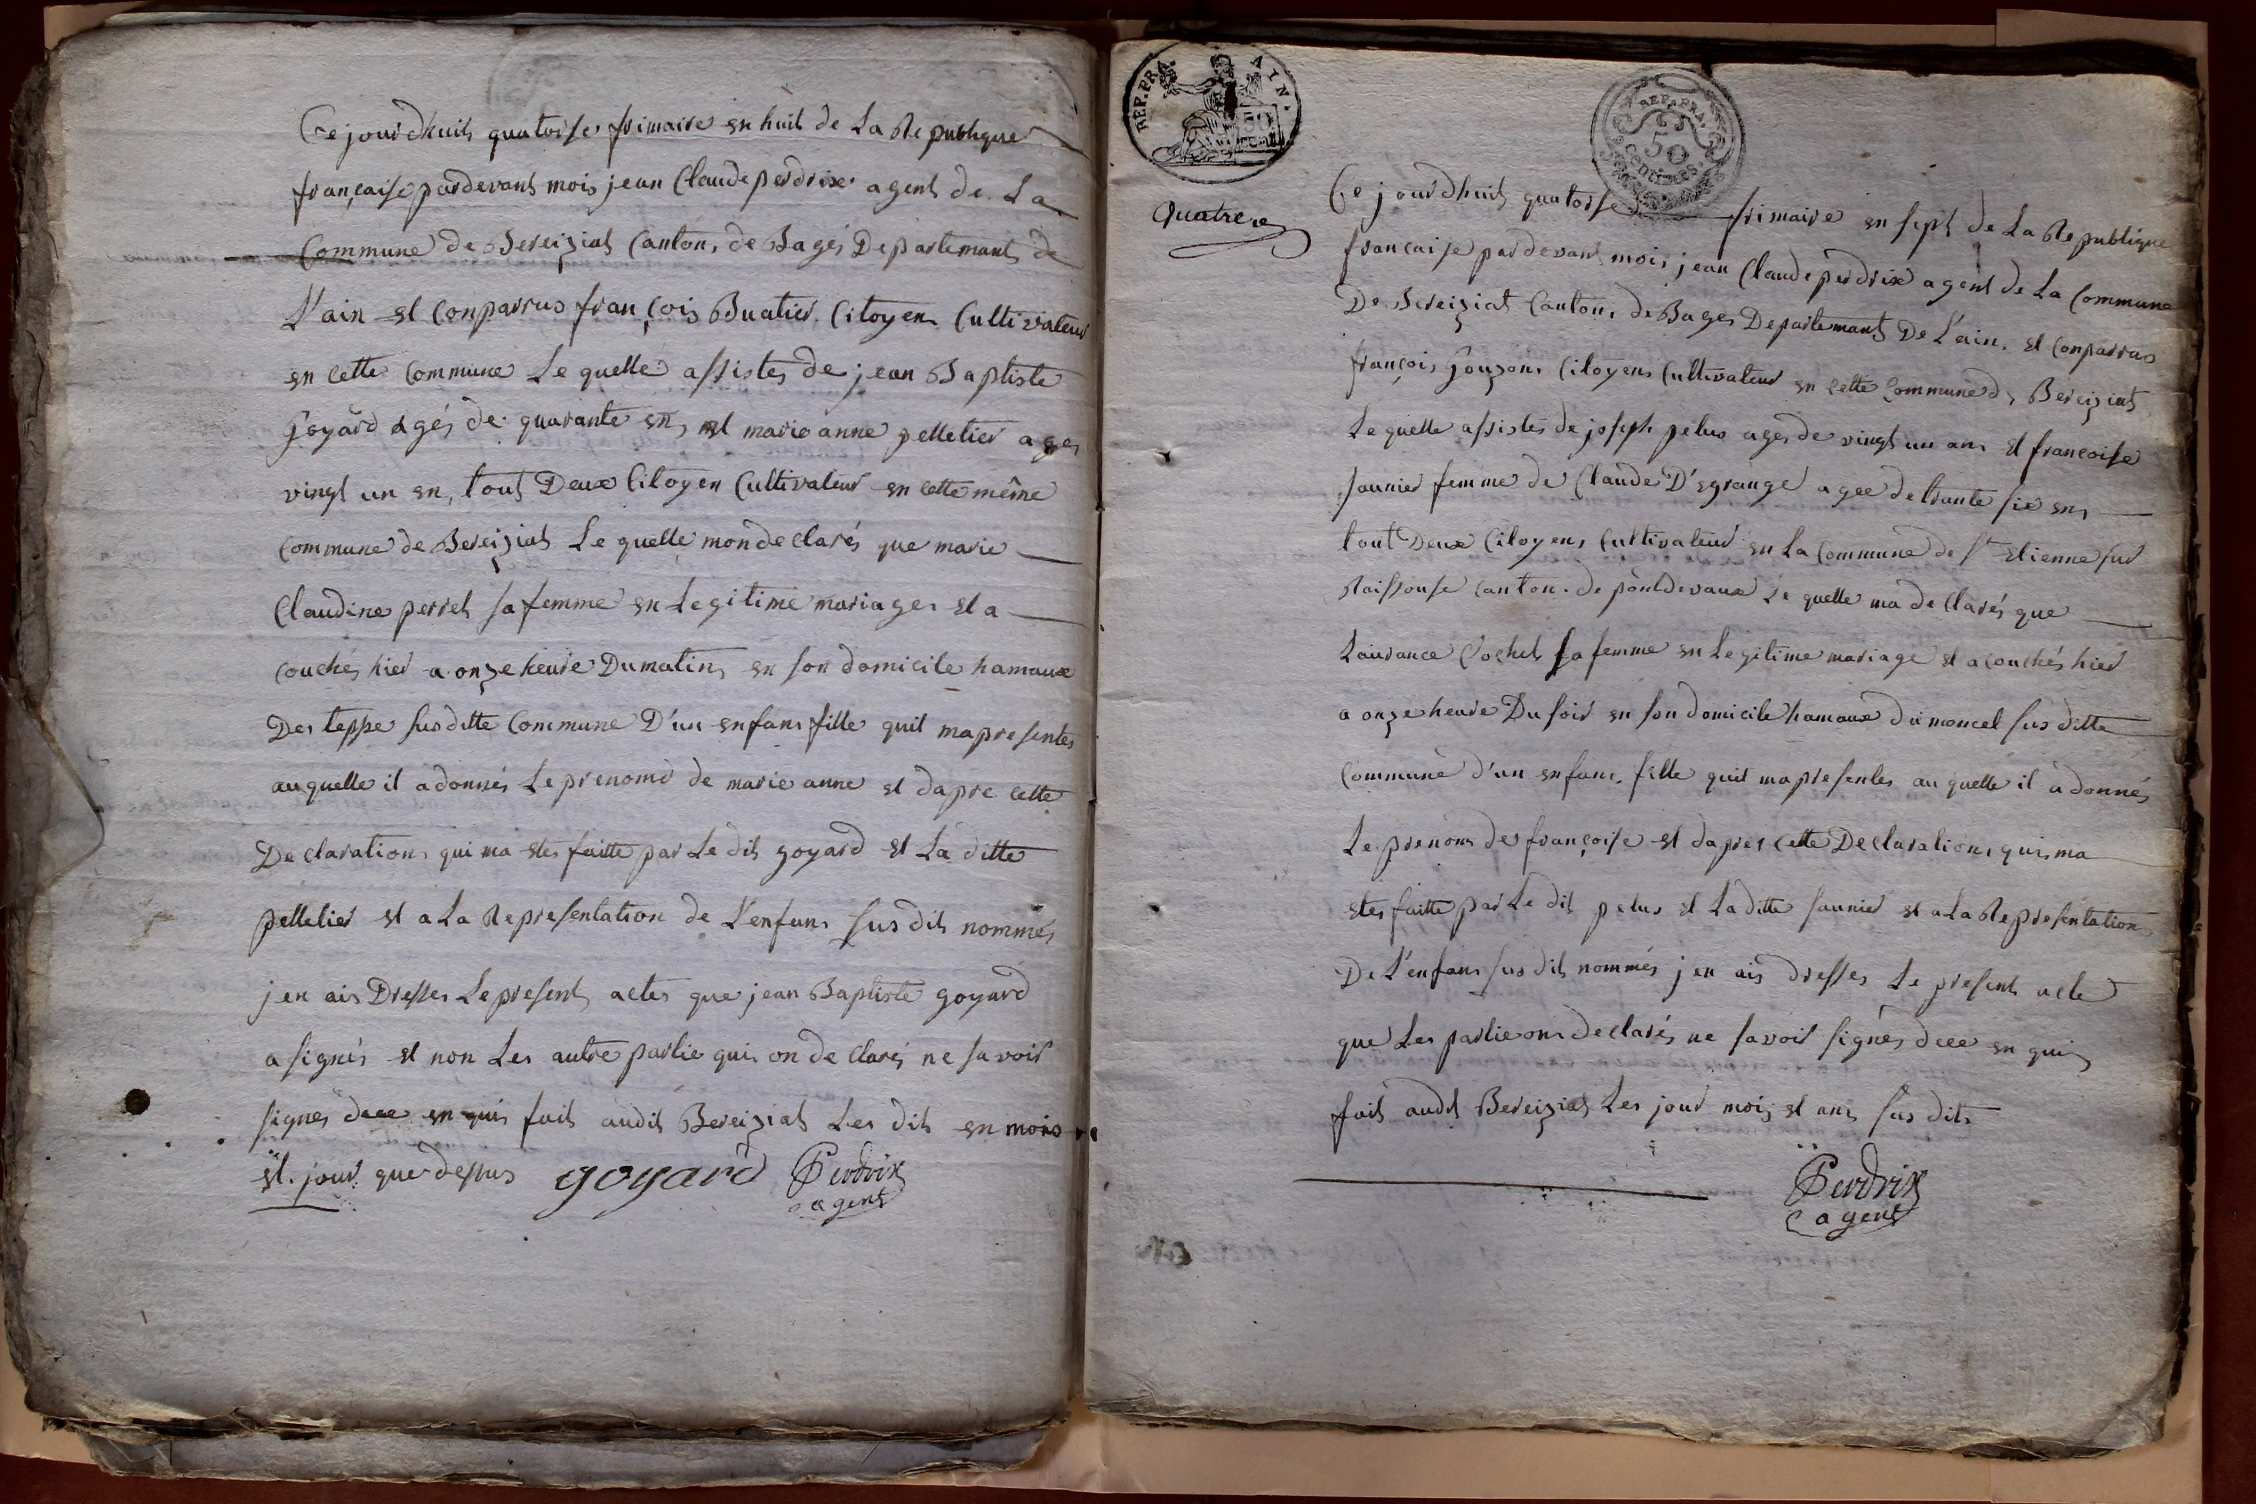 Ce jourdhuit quatorse frimaire en huit de La Republique
française pardevant mois jean Claude perdrix agent de La
Commune de Bereiziat Canton de Bagés Departemant de
L'ain et Conparrus françois Buatier Citoyen Cultivateur
en cette Commune Le quelle assistes de jean Baptiste
Goyard agés de quarante en, et marie anne pelletier ages
vingt un en, tout Deux Citoyen Cultivateur en cette même
commune de Bereiziat Le quelle mon declarés que marie
Claudine perret sa femme en Legitime mariage et a
couchés hier a onze heure Du matin en son domicile hamaux
Des teppe susditte Commune D'un enfans fille quil mapresentes
auquelle il a donnés Le prenomd de marie anne et dapre cette
Declaration qui ma etes faitte par Le dit goyard et La ditte
pelletier et a La Representation de L'enfans sus dit nommés
jen ais Dresses Le present actes que jean Baptiste goyard
a signés et non Les autre partie quis on declarés ne savoir
signes dece en quis fait audit Bereiziat Les dit en mois
et jour que dessus goyard Perdrix
agent
REP. FRA. AIN.
REP. FRA. 50 centimes
quatre
Ce jourdhuit quatorse frimaire en sept de La Republique
francaise pardevant mois jean Claude perdrix agent de La Commune
De Bereiziat Canton de Bages Departemant De L'ain. et conparrus
françois Gouzon Citoyen Cultivateur en cette Commune de Bereiziat
Le quelle assistes de joseph pelus ages de vingt un ans et francoise
saunier femme de Claude D'egrange agee de trante six en,
tout Deux Citoyens Cultivateur en La Commune de St Etienne sur
Raissouse canton de pontdevaux Le quelle ma declarés que
Laurance Cochet sa femme en Legitime mariage et a couchés hier
a onze heure Du soir en son domicile hamaux du moncel sus ditte
Commune d'un enfans fille quil mapresentes au quelle il a donnés
Le prenom de françoise et dapres cette Declaration quis ma
etes faitte par Le dit pelus et La ditte saunier et a La Representation
De L'enfans sus dit nommés jen ais dresses Le present acte
que Les partie ons declarés ne savoir signés dece en quis
fait audit Bereiziat Les jour mois et ans sus dits
Perdrix
agent